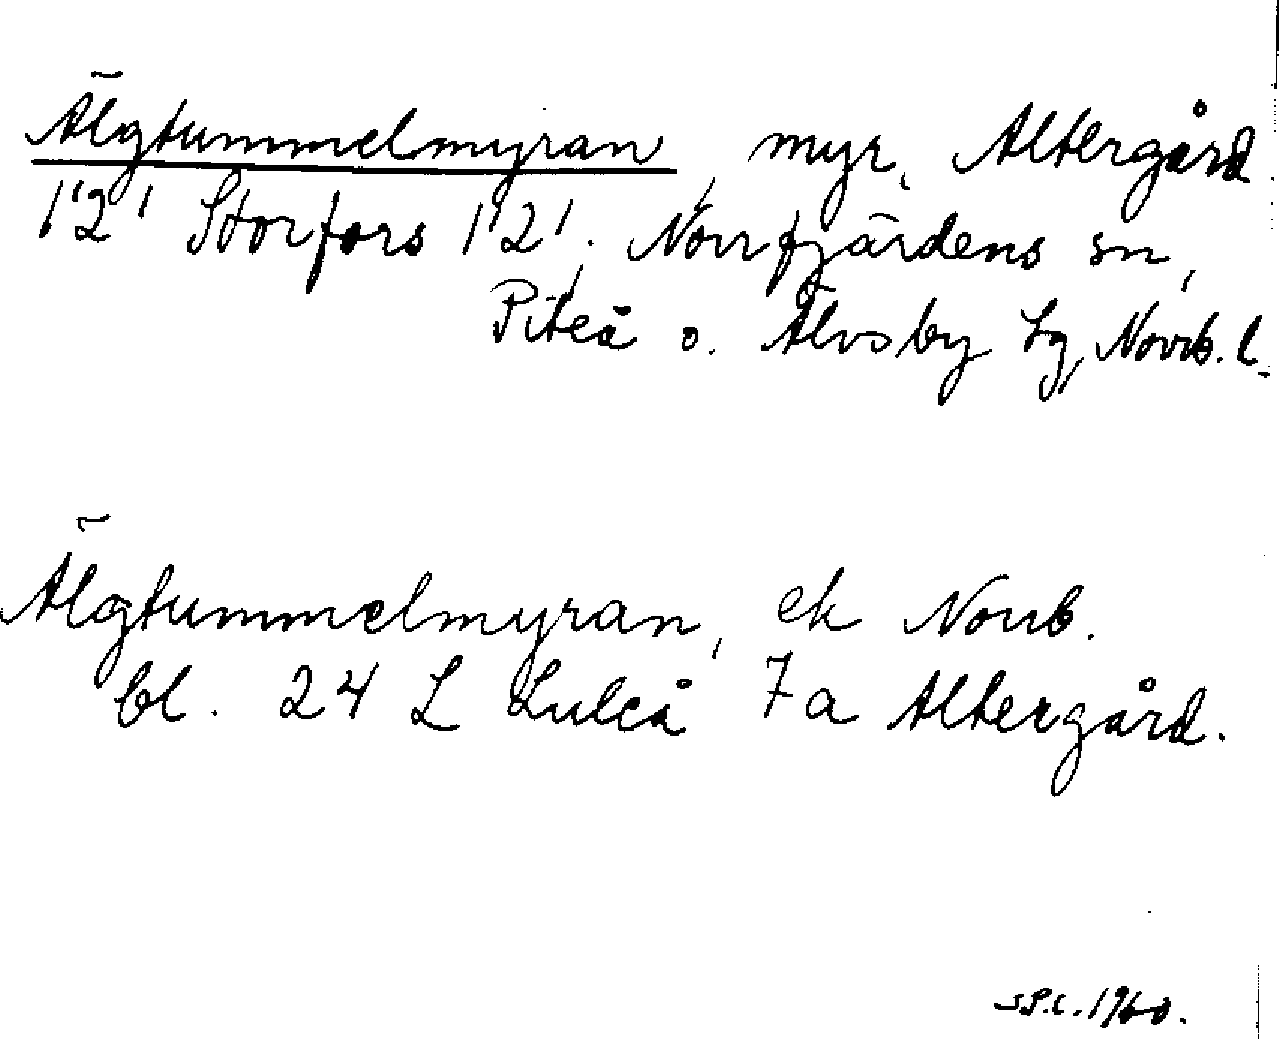 Älgtummelmyran, myr, Altergård
1'2' Storfors 1'2'. Norrfjärdens sn,
Piteå o. Älvsby tg, Norrb. l.
Älgtummelmyran, ek Norrb.
bl. 24 L Luleå 7a Altergård.
1960.